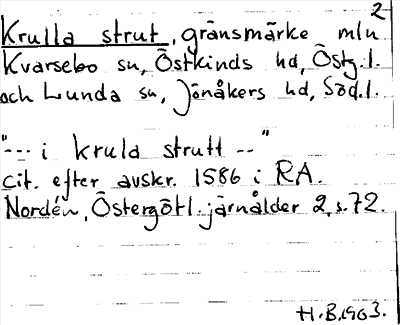 2
Krulla strut, gränsmärke mln
Kvarsebo sn, Östkinds hd, Östg.l.
och Lunda sn, Jönåkers hd, Söd.l.
"--- i krula strutt --"
cit. efter avskr. 1586 i RA.
Nordén, Östergötl. järnålder 2, s. 72.
H.B. 1903.